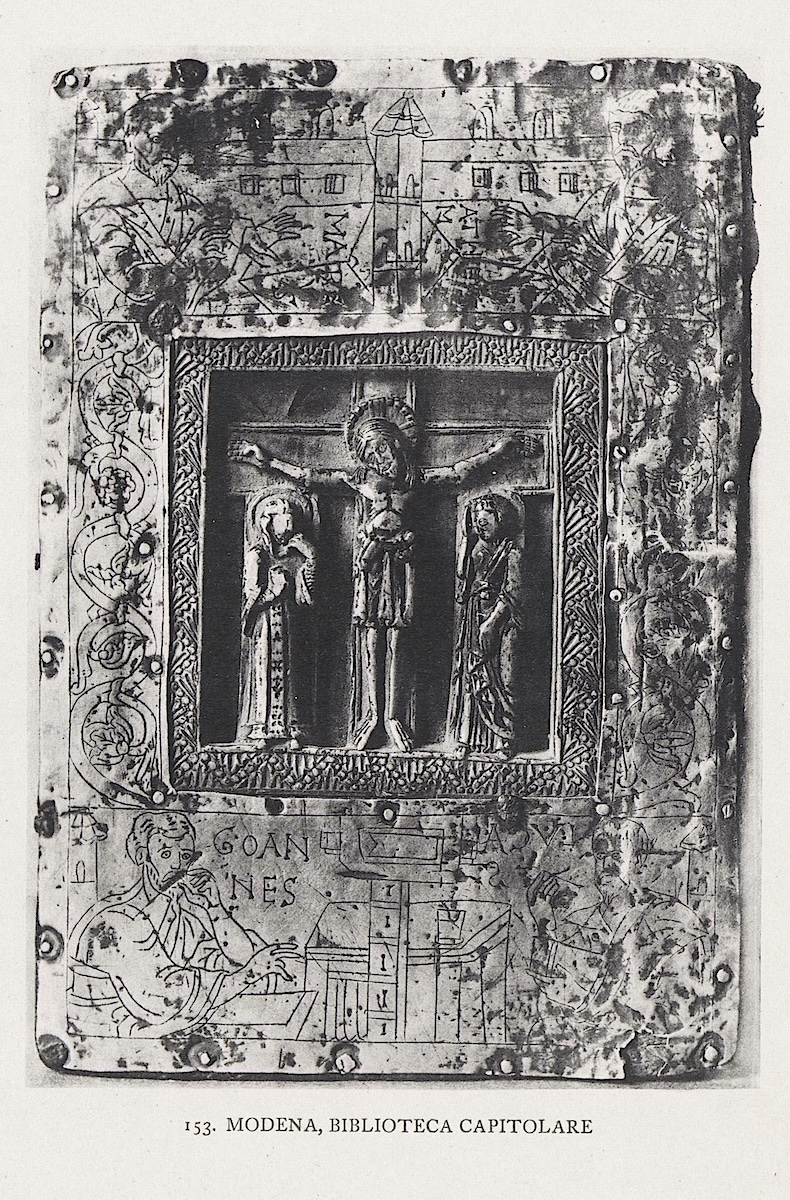 GOAN
NES
153. MODENA, BIBLIOTECA CAPITOLARE